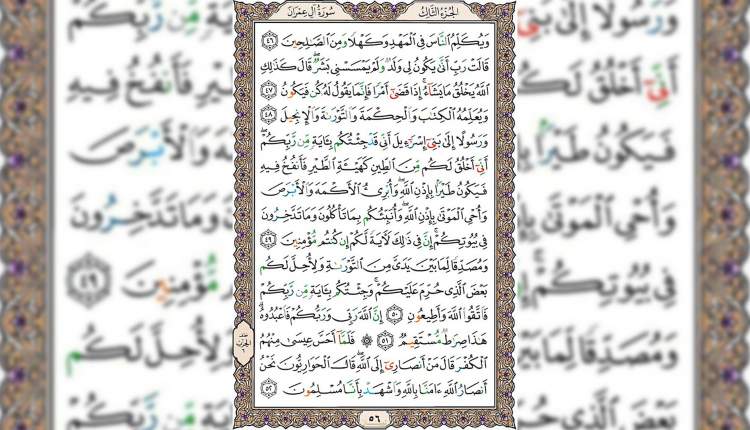 الجزء الثالث
سورة آل عمران
وَيُكَلِّمُ ٱلنَّاسَ فِى ٱلْمَهْدِ وَكَهْلًا وَمِنَ ٱلصَّٰلِحِينَ ٤٦
قَالَتْ رَبِّ أَنَّىٰ يَكُونُ لِى وَلَدٌ وَلَمْ يَمْسَسْنِى بَشَرٌ ۖ قَالَ كَذَٰلِكِ
ٱللَّهُ يَخْلُقُ مَا يَشَآءُ ۚ إِذَا قَضَىٰٓ أَمْرًا فَإِنَّمَا يَقُولُ لَهُۥ كُن فَيَكُونُ ٤٧
وَيُعَلِّمُهُ ٱلْكِتَٰبَ وَٱلْحِكْمَةَ وَٱلتَّوْرَىٰةَ وَٱلْإِنجِيلَ ٤٨
وَرَسُولًا إِلَىٰ بَنِىٓ إِسْرَٰٓءِيلَ أَنِّى قَدْ جِئْتُكُم بِـَٔايَةٍ مِّن رَّبِّكُمْ ۖ
أَنِّىٓ أَخْلُقُ لَكُم مِّنَ ٱلطِّينِ كَهَيْـَٔةِ ٱلطَّيْرِ فَأَنفُخُ فِيهِ
فَيَكُونُ طَيْرًۢا بِإِذْنِ ٱللَّهِ ۖ وَأُبْرِئُ ٱلْأَكْمَهَ وَٱلْأَبْرَصَ
وَأُحْىِ ٱلْمَوْتَىٰ بِإِذْنِ ٱللَّهِ ۖ وَأُنَبِّئُكُم بِمَا تَأْكُلُونَ وَمَا تَدَّخِرُونَ
فِى بُيُوتِكُمْ ۚ إِنَّ فِى ذَٰلِكَ لَـَٔايَةً لَّكُمْ إِن كُنتُم مُّؤْمِنِينَ ٤٩
وَمُصَدِّقًا لِّمَا بَيْنَ يَدَىَّ مِنَ ٱلتَّوْرَىٰةِ وَلِأُحِلَّ لَكُم
بَعْضَ ٱلَّذِى حُرِّمَ عَلَيْكُمْ ۚ وَجِئْتُكُم بِـَٔايَةٍ مِّن رَّبِّكُمْ
فَٱتَّقُوا۟ ٱللَّهَ وَأَطِيعُونِ ٥٠ إِنَّ ٱللَّهَ رَبِّى وَرَبُّكُمْ فَٱعْبُدُوهُ ۗ
هَٰذَا صِرَٰطٌ مُّسْتَقِيمٌ ٥١ ۞ فَلَمَّآ أَحَسَّ عِيسَىٰ مِنْهُمُ
ٱلْكُفْرَ قَالَ مَنْ أَنصَارِىٓ إِلَى ٱللَّهِ ۖ قَالَ ٱلْحَوَارِيُّونَ نَحْنُ
أَنصَارُ ٱللَّهِ ءَامَنَّا بِٱللَّهِ وَٱشْهَدْ بِأَنَّا مُسْلِمُونَ ٥٢
٥٦